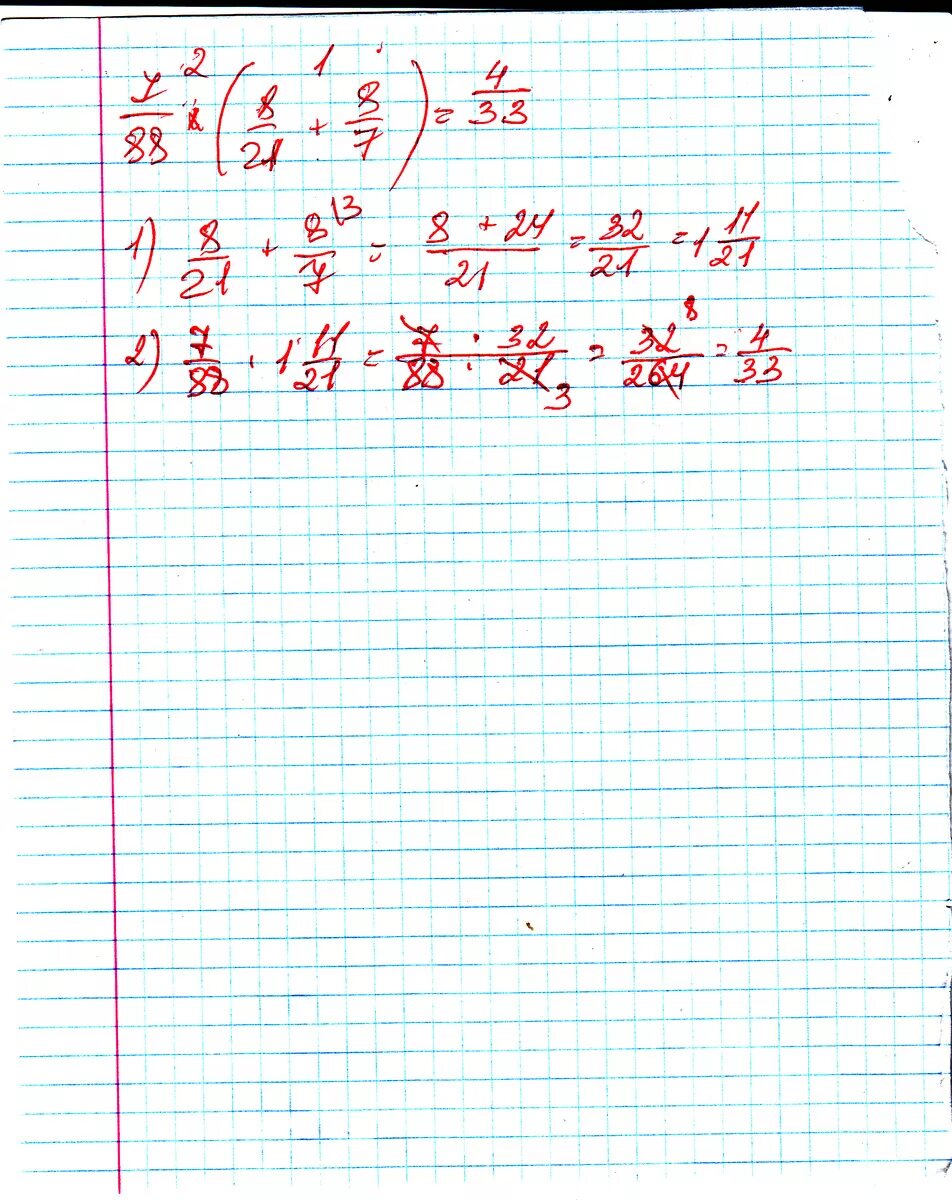 7/88 · (8/21 + 8/7) = 4/33
2 1
1) 8/21 + 8/7 \3 = 8 + 24/21 = 32/21 = 1 11/21
2) 7/88 · 1 11/21 = 7 · 32/88 · 21 3 = 32/264 8 = 4/33